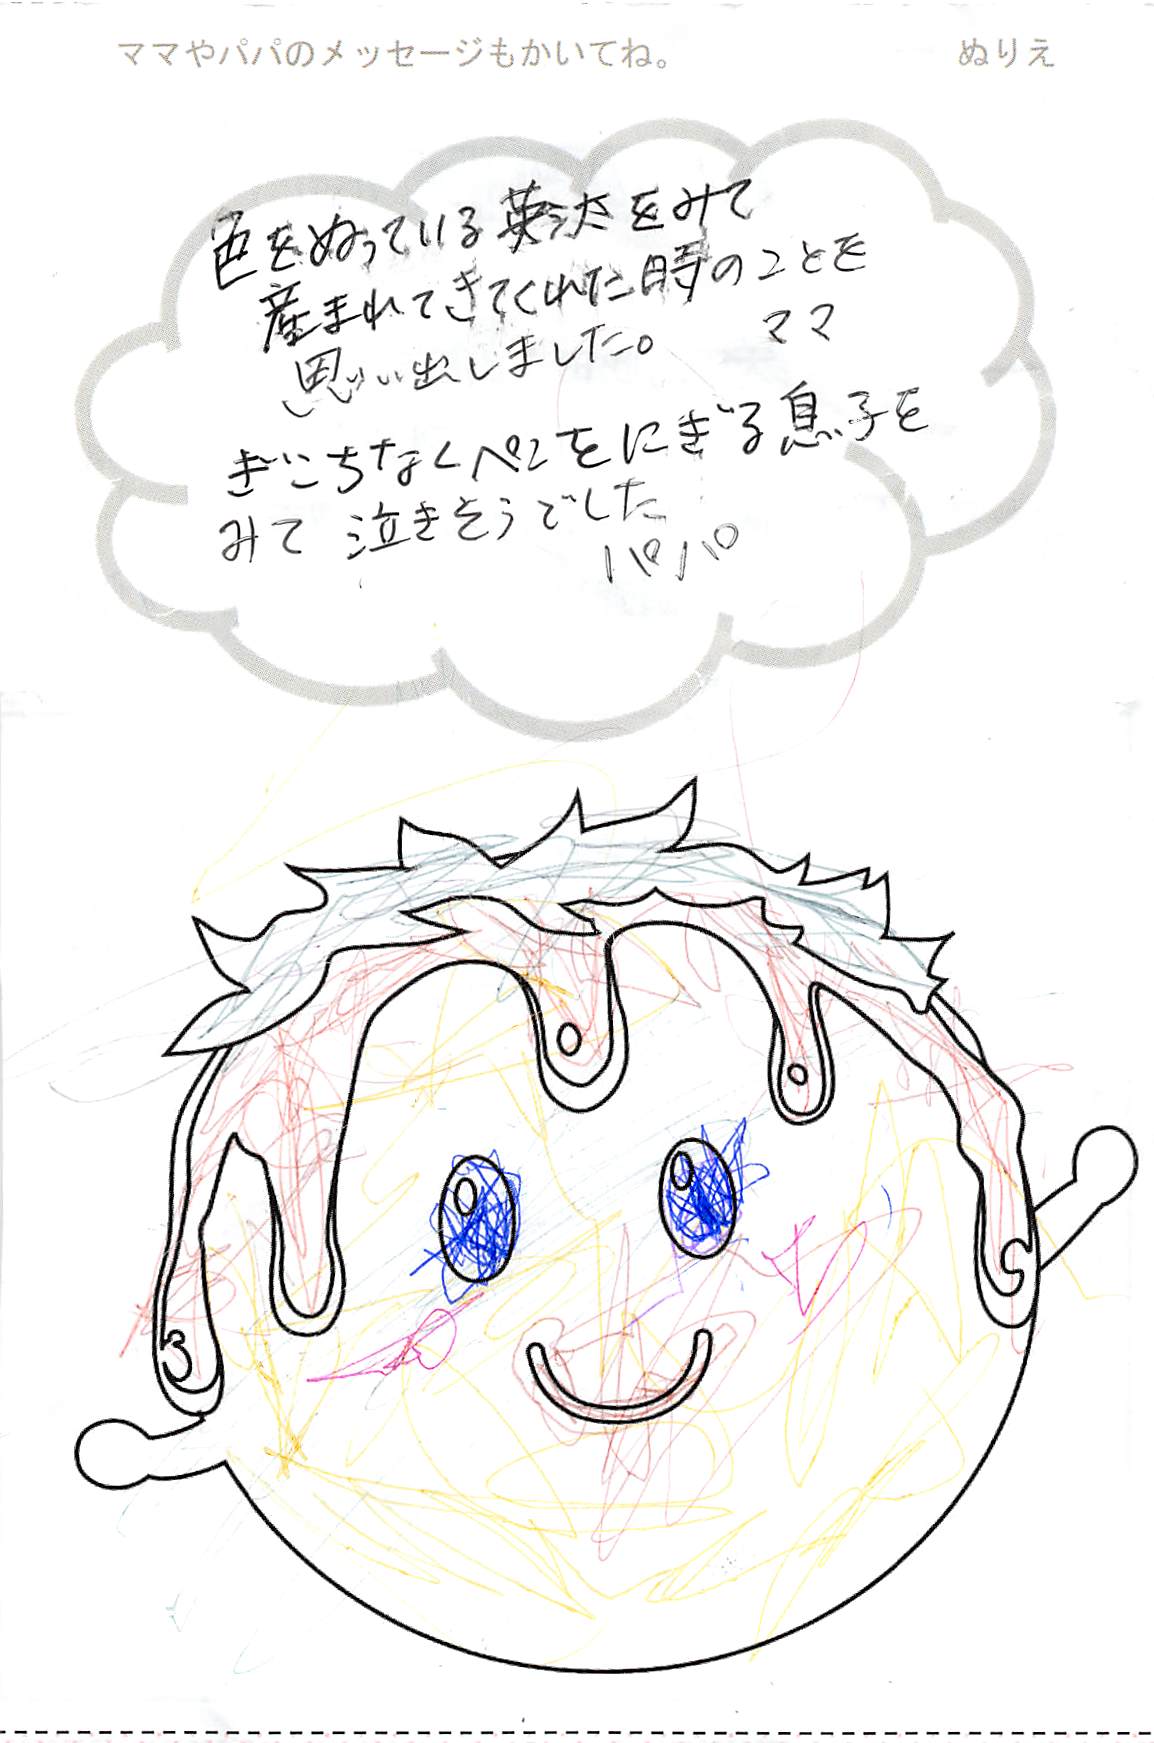 ママやパパのメッセージもかいてね。
ぬりえ
色をぬっている英汰をみて
産まれてきてくれた時のことを
思い出しました。 ママ
ぎこちなくペンをにぎる息子を
みて 泣きそうでした
パパ